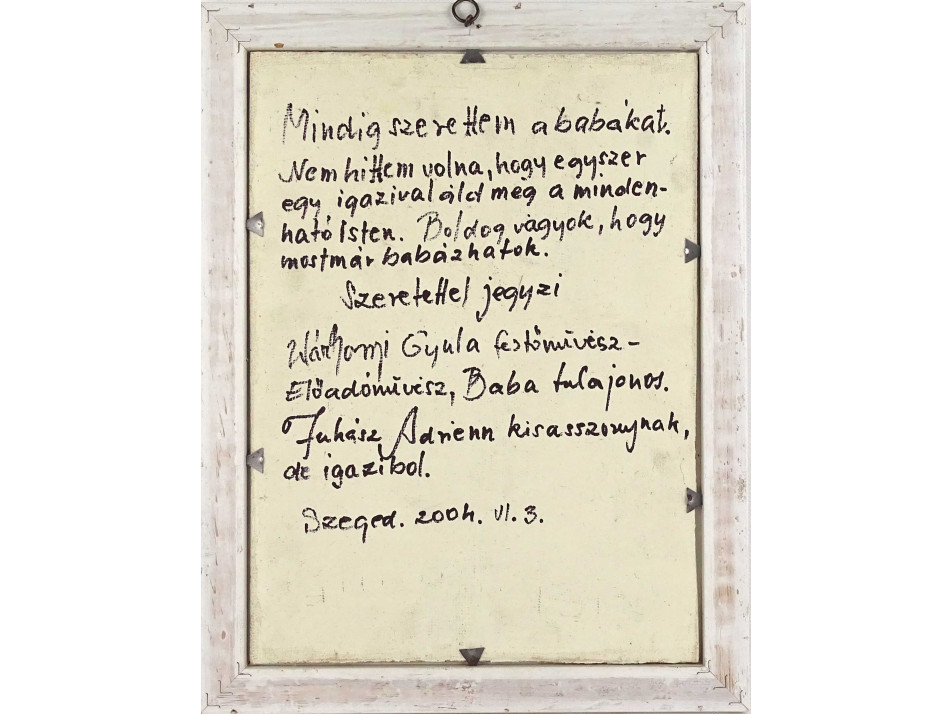 Mindig szerettem a babákat.
Nem hittem volna, hogy egyszer
egy igazival áld meg a minden-
ható Isten. Boldog vagyok, hogy
mostmár babázhatok.
Szeretettel jegyzi
Gyula festőművész -
Előadóművész, Baba tulajonos.
Juhász Adrienn kisasszonynak,
de igaziból.
Szeged. 2004. VI. 3.